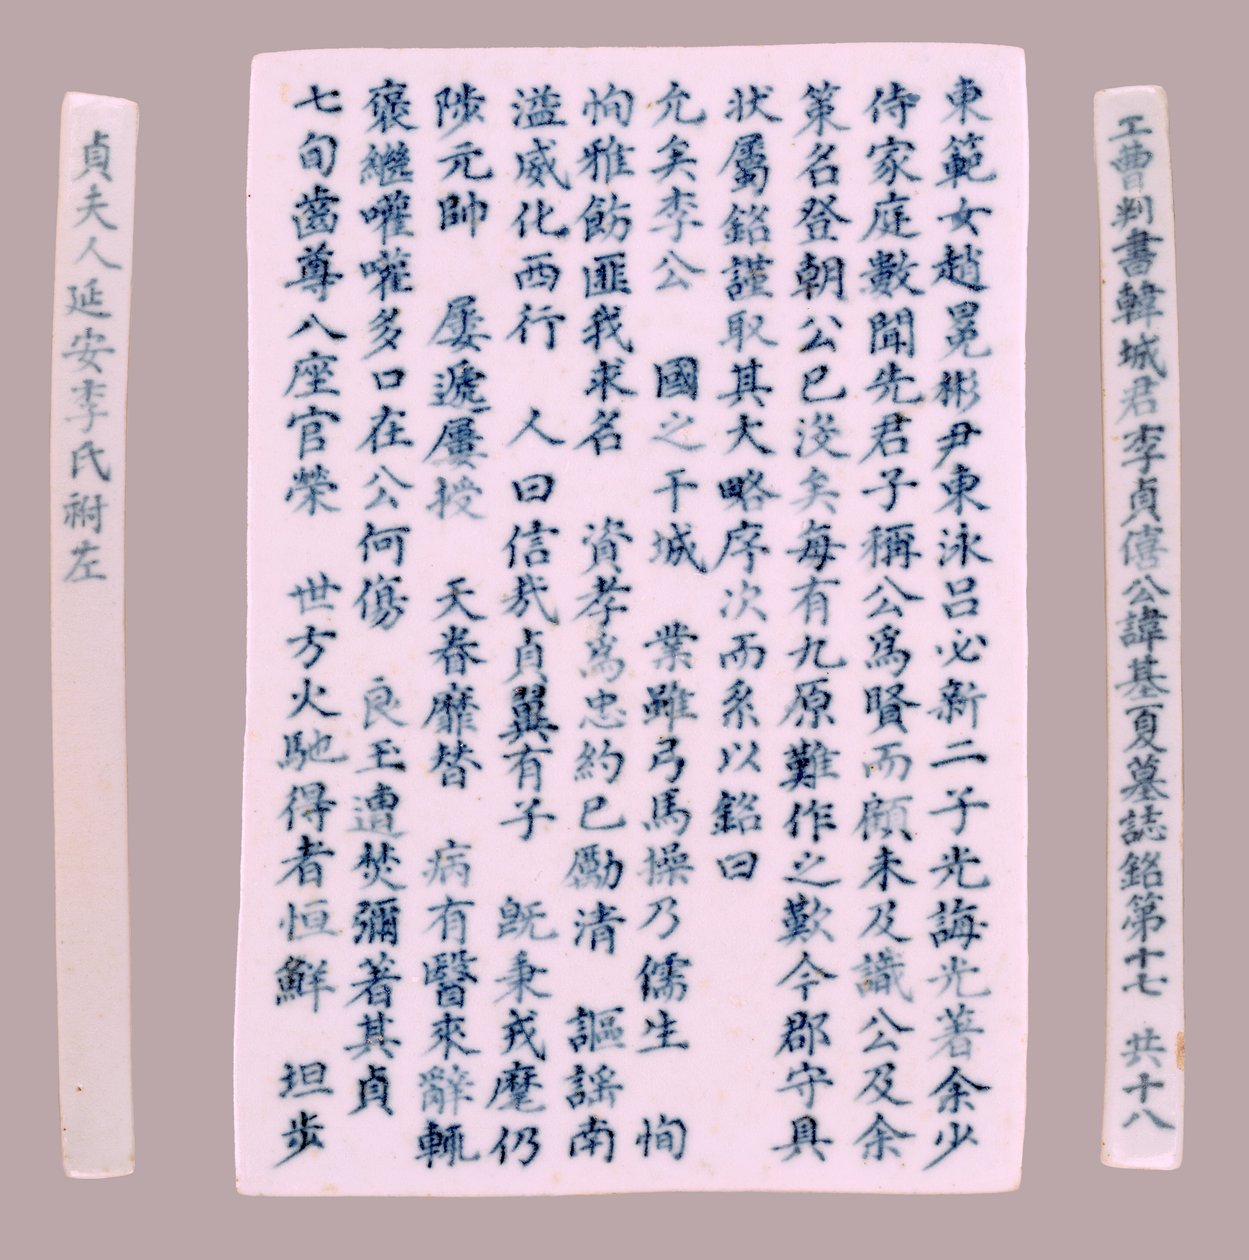 工曹判書韓城君李貞僖公諱基夏墓誌銘第十七 共十八
東範女趙冕彬尹東泳呂必新二子光誨光著余少
侍家庭數聞先君子稱公爲賢而顧未及識公及余
策名登朝公已沒矣每有九原難作之歎今郡守具
狀屬銘謹取其大略序次而系以銘曰
允矣李公 國之干城 業雖弓馬操乃儒生 恂
恂雅飭匪我求名 資孝爲忠約已勵清 謳謠南
溢威化西行 人曰信哉貞翼有子 旣秉戎麾仍
陟元帥 屢遞屢授 天眷靡替 病有醫來辭輒
褒繼嚾嚾多口在公何傷 良玉遭焚彌著其貞
七旬齒尊八座官榮 世方火馳得者恒鮮 坦步
貞夫人延安李氏祔左